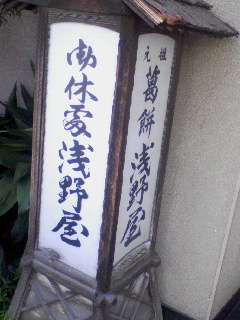 御休處浅野屋
元祖
葛餅浅野屋